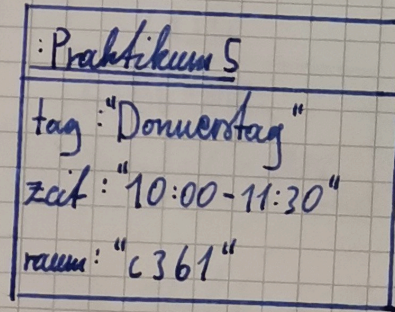 :Praktikum 5
tag : "Donnerstag"
zeit : "10:00-11:30"
raum: "c361"